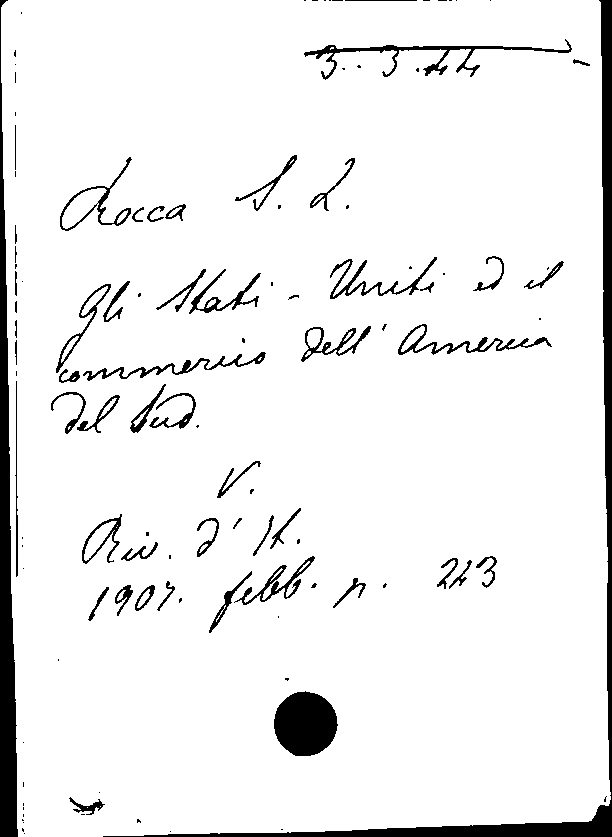 3..3.44
Rocca S. L.
Gli Stati-Uniti ed il
commercio dell'America
del Sud.
V.
Riv. d'It.
1907. febb. p. 223